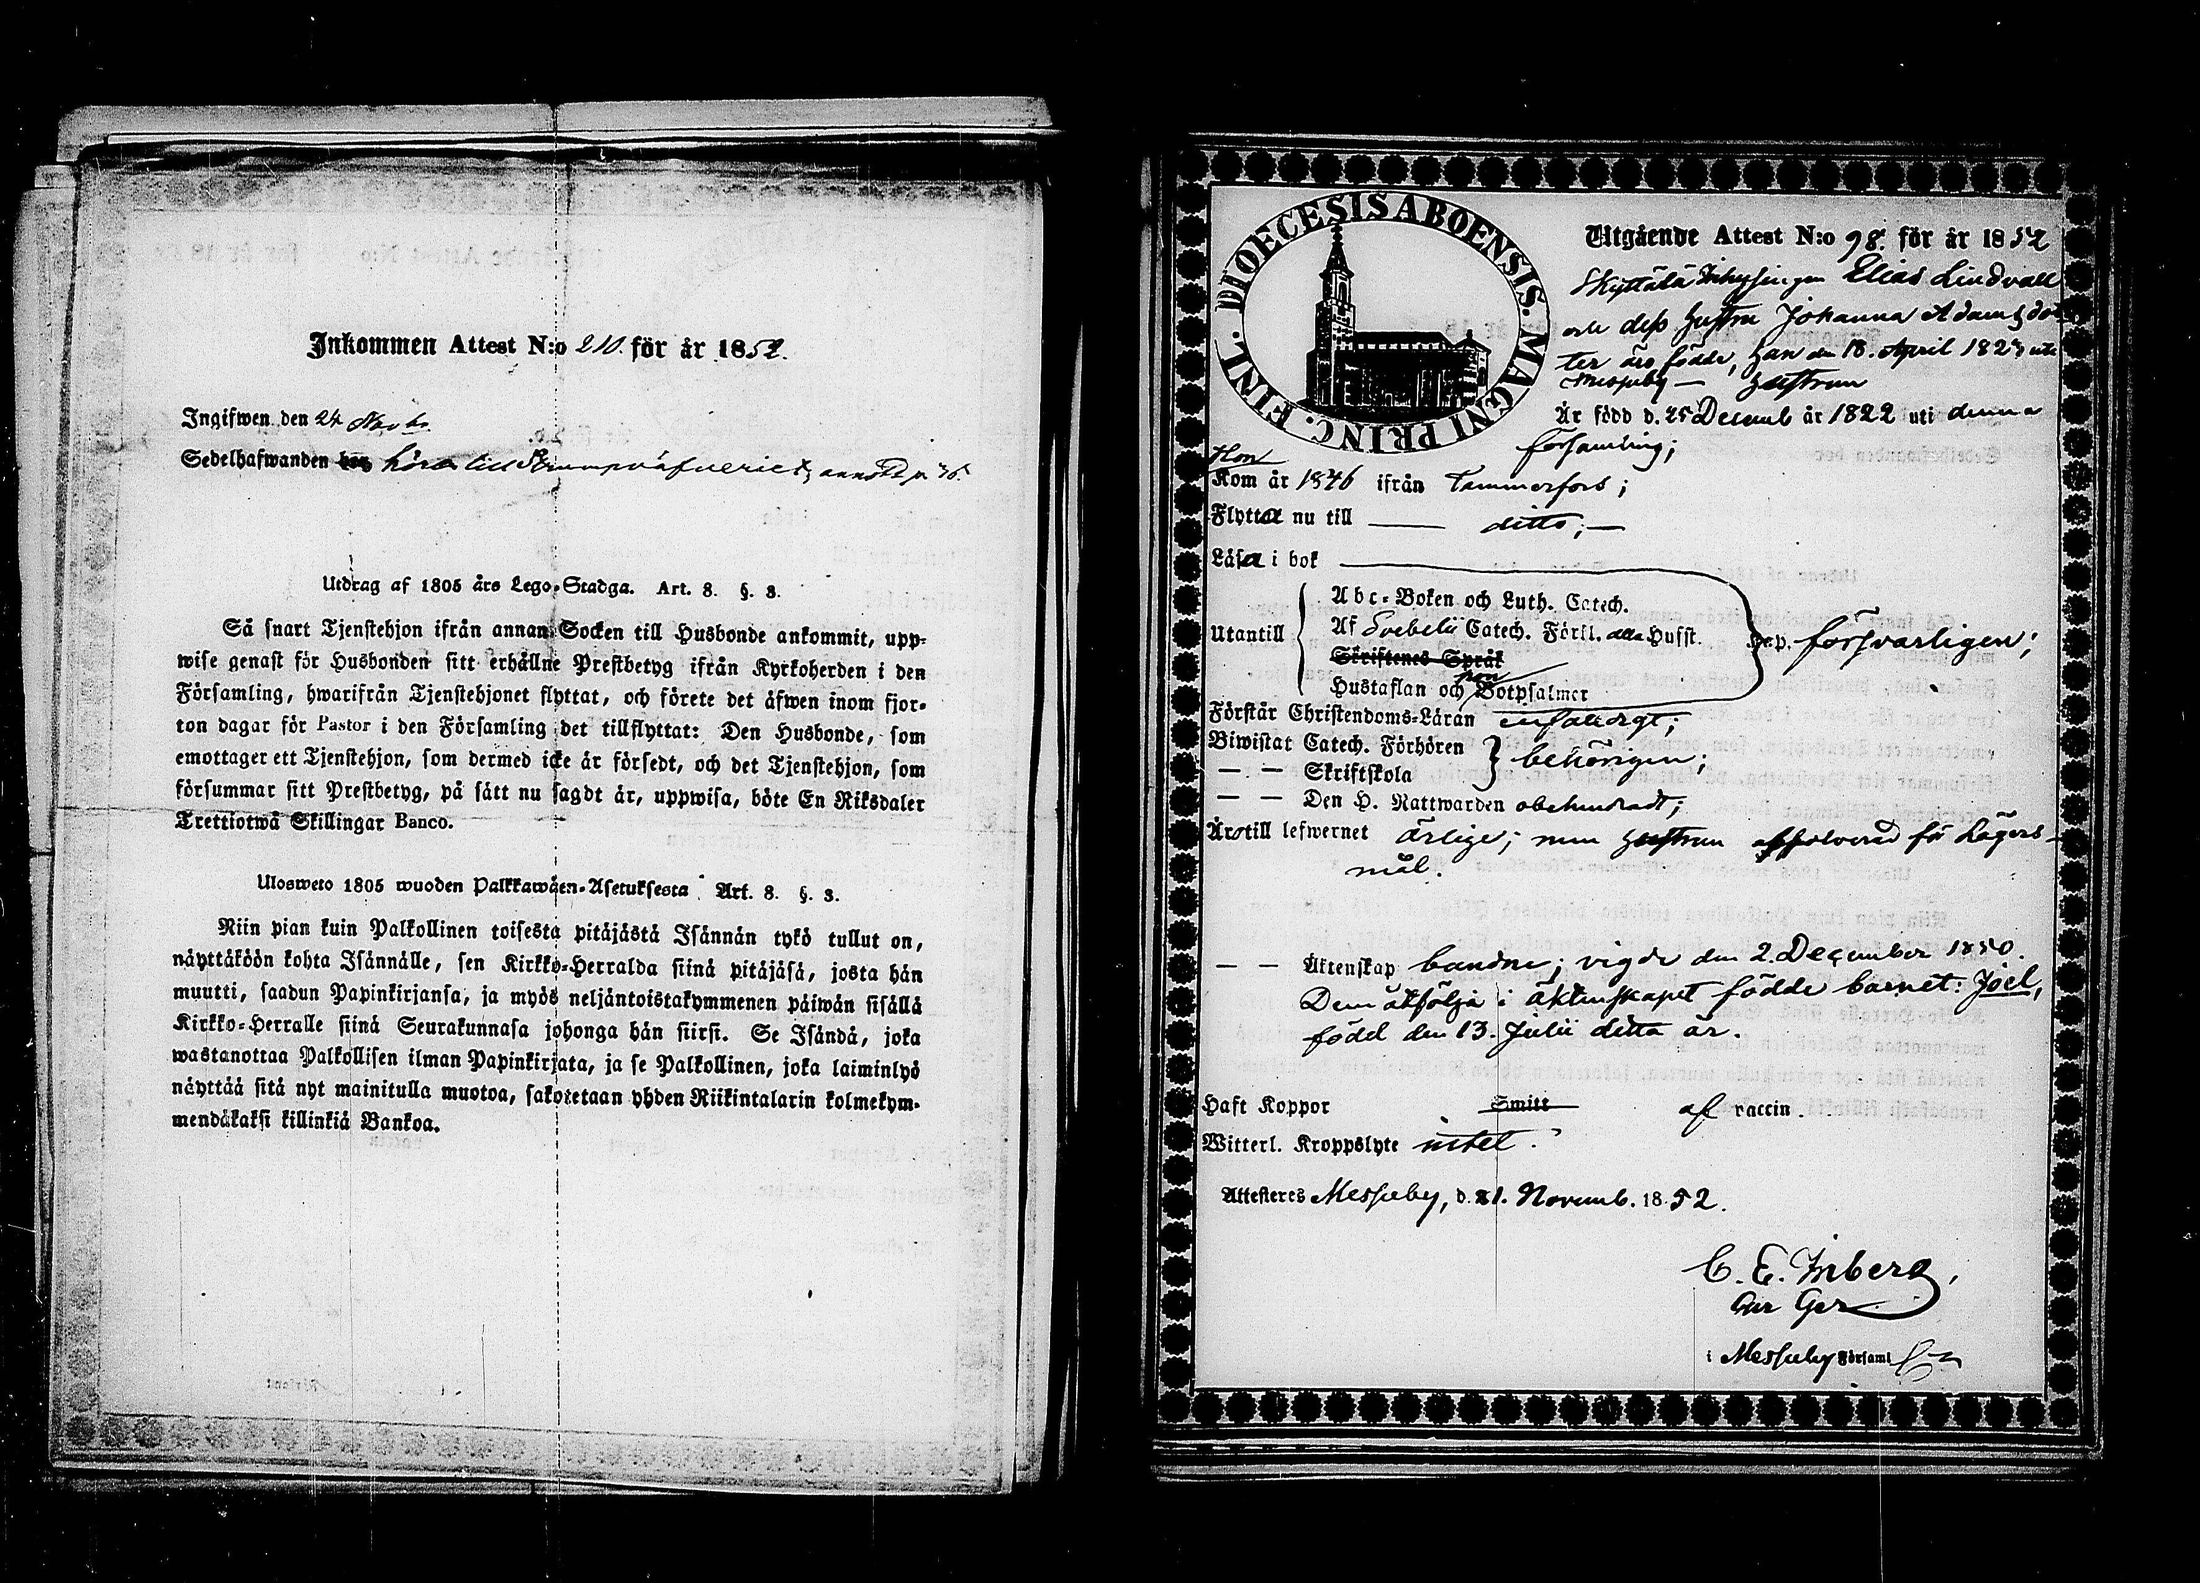 Inkommen Attest N:o 210. för år 1852.
Ingifwen den 24 Novbr.
Sedelhafwanden bor hörer till Strumpväfveriet,
Utdrag af 1805 års Lego-Stadga. Art. 8. §. 3.
Så snart Tjenstehjon ifrån annan Socken till Husbonde ankommit, upp-
wise genast för Husbonden sitt erhållne Prestbetyg ifrån Kyrkoherden i den
Församling, hwarifrån Tjenstehjonet flyttat, och förete det äfwen inom fjor-
ton dagar för Pastor i den Församling det tillflyttat: Den Husbonde, som
emottager ett Tjenstehjon, som dermed icke är försedt, och det Tjenstehjon, som
försummar sitt Prestbetyg, på sått nu sagdt är, uppwisa, böte En Riksdaler
Trettiotwå Skillingar Banco.
Ulosweto 1805 wuoden Palkkawäen-Asetuksesta Art. 8. §. 3.
Niin pian kuin Palkollinen toisesta pitäjästä Isännän tykö tullut on,
näyttäköön kohta Isännälle, sen Kirkko-Herralda siinä pitäjäsä, josta hän
muutti, saadun Papinkirjansa, ja myös neljäntoistakymmenen päiwän sisällä
Kirkko-Herralle siinä Seurakunnasa johonga hän siirsi. Se Isändä, joka
wastanottaa Palkollisen ilman Papinkirjata, ja se Palkollinen, joka laiminlyö
näyttää sitä nyt mainitulla muotoa, sakotetaan yhden Riikintalarin kolmekym-
mendäkaksi killinkiä Bankoa.
DIOECESIS ABOENSIS. MAGNI PRINC. FINL.
Utgående Attest N:o 98. för år 1852
Skyttälä Inhysingen Elias Lindvall
och dess hustru Johanna Adamsdot
ter äro födde, han den 18. April 1823 uti
Messuby — hustrun
Är född d. 25 Decemb år 1822 uti denna
församling;
Hon
Kom år 1846 ifrån Tammerfors;
Flytta nu till —— ditto; —
Läsa i bok
Abc-Boken och Luth. Catech.
Utantill Af Svebelii Catech. Förkl. alla Husst. hop. försvarligen;
Skriftenes Språk
Hustaflan och hon Botpsalmer
Förstår Christendoms-Läran enfaldigt;
Biwistat Catech. Förhören
— — Skriftskola behörigen;
— — Den H. Nattwarden obehindradt;
Äro till lefwernet ärlige; men hustrun absolverad för Lägers-
mål.
— — Äktenskap bundne; vigde den 2. December 1850.
Dem åtfölja i äktenskapet födde barnet: Joel,
född den 13. Julii detta år.
Haft Koppor Smitt af vaccin.
Witterl. Kroppslyte intet.
Attesteres Messuby, d. 21. Novemb. 1852.
C. E. Inberg,
i Messuby Församl